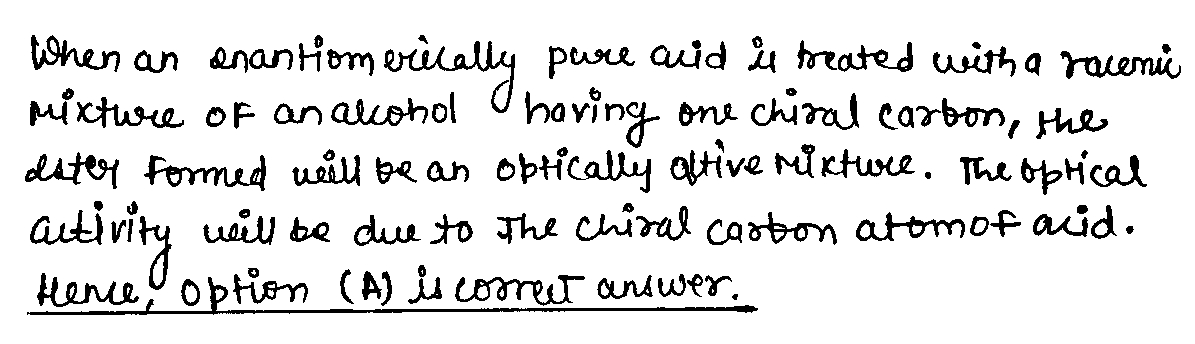 When an enantiomerically pure acid is treated with a racemic
mixture of an alcohol having one chiral carbon, the
ester formed will be an optically active mixture. The optical
activity will be due to the chiral carbon atom of acid.
Hence, option (A) is correct answer.